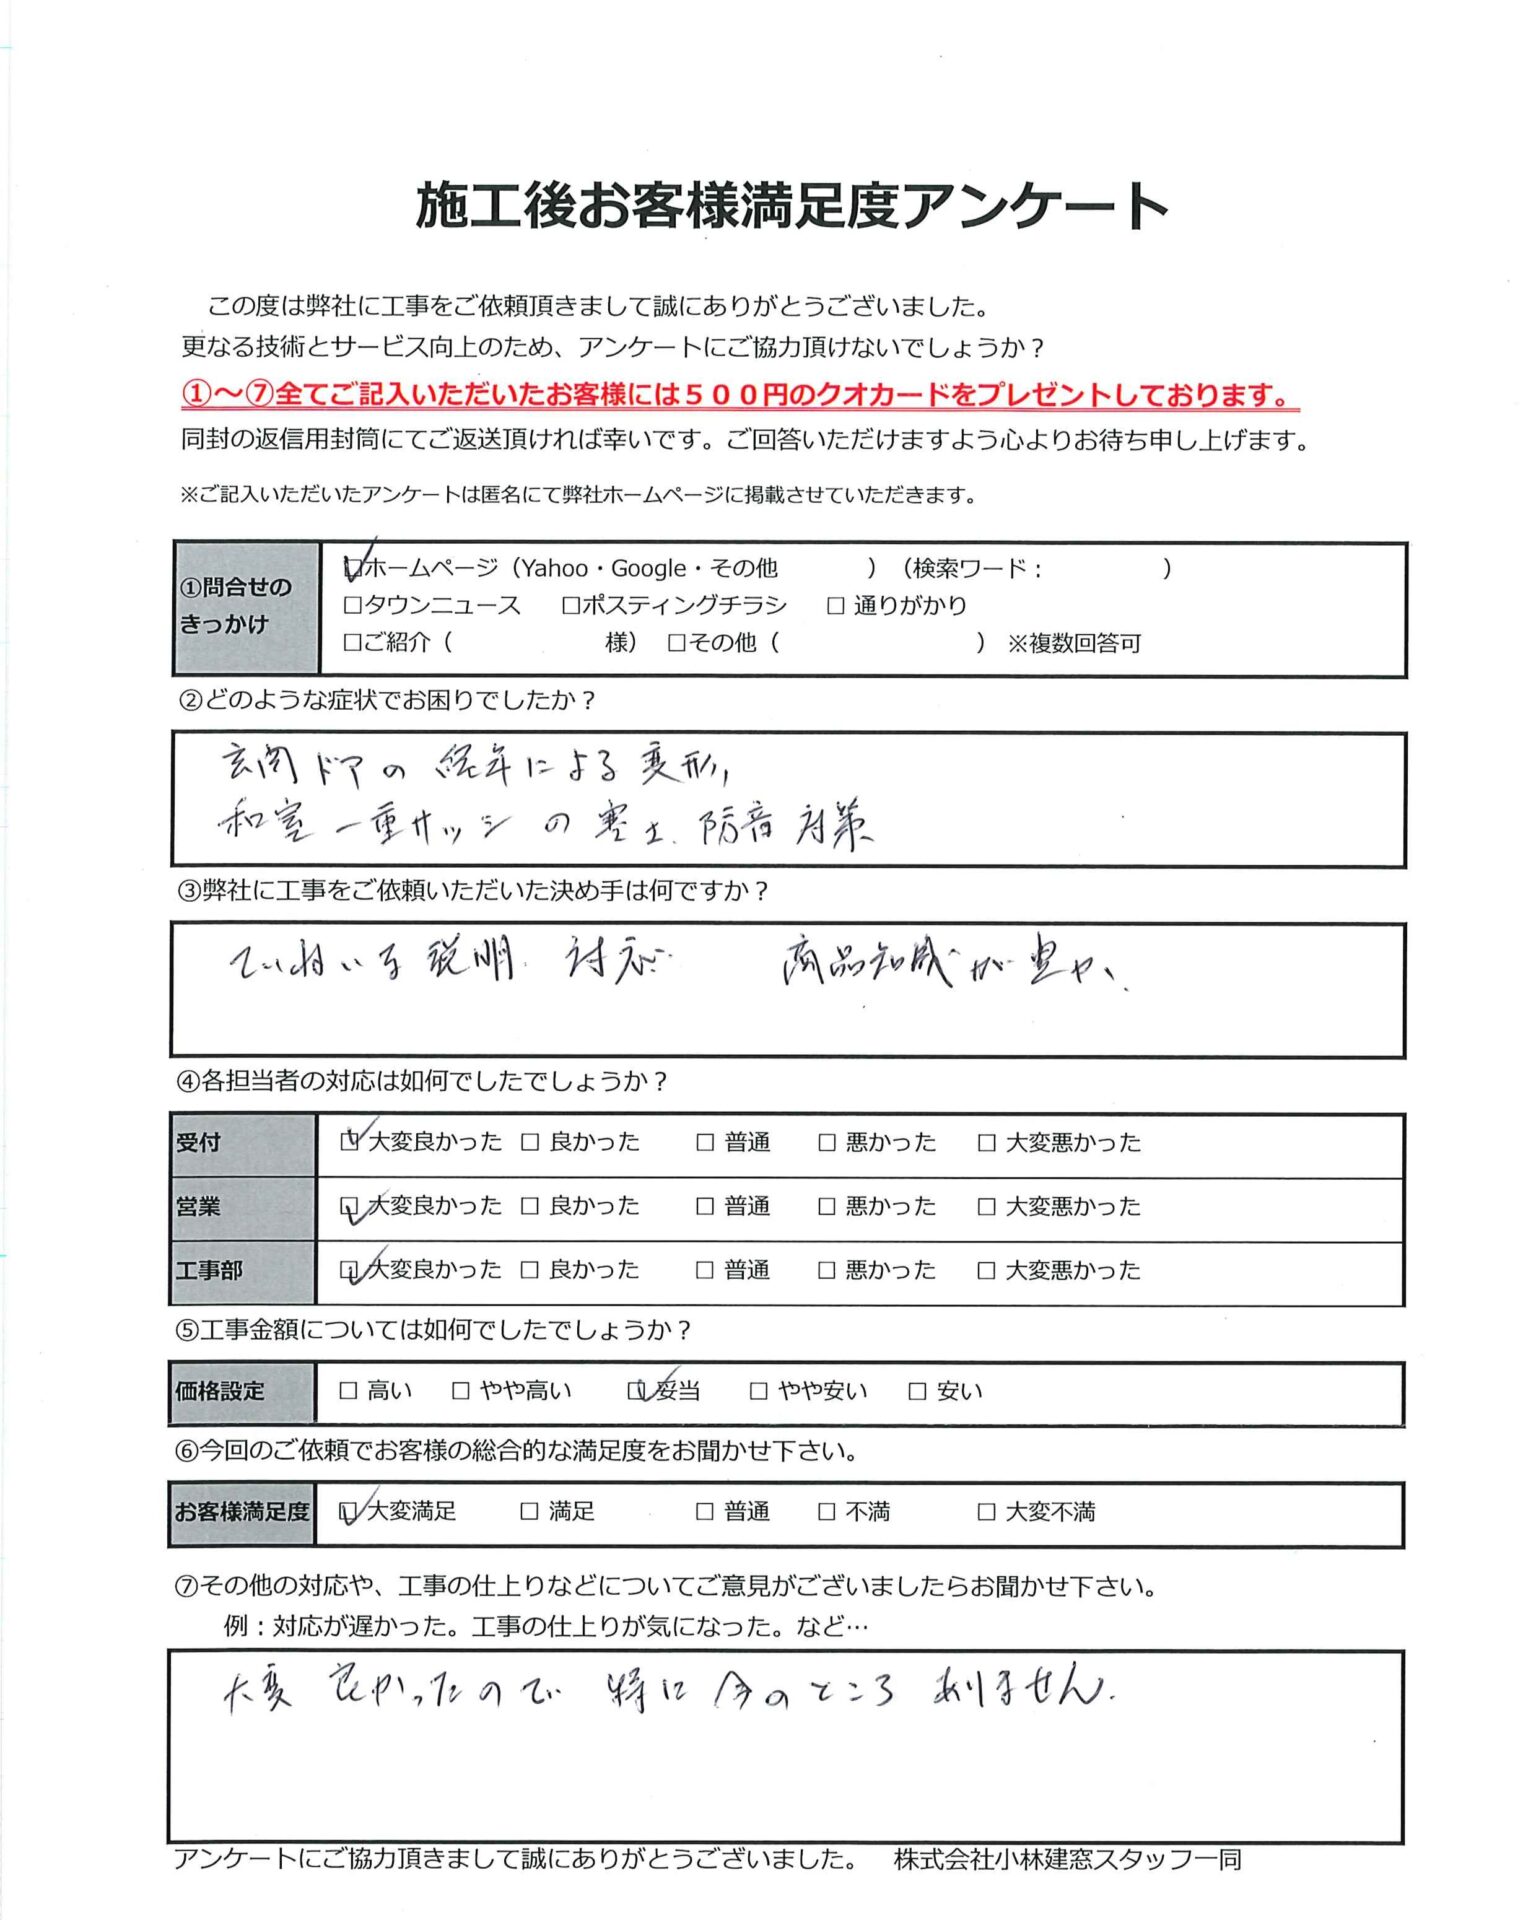 施工後お客様満足度アンケート
この度は弊社に工事をご依頼頂きまして誠にありがとうございました。
更なる技術とサービス向上のため、アンケートにご協力頂けないでしょうか？
①～⑦全てご記入いただいたお客様には５００円のクオカードをプレゼントしております。
同封の返信用封筒にてご返送頂ければ幸いです。ご回答いただけますよう心よりお待ち申し上げます。
※ご記入いただいたアンケートは匿名にて弊社ホームページに掲載させていただきます。
①問合せのきっかけ
☑ホームページ（Yahoo・Google・その他　　　　）（検索ワード：　　　　　）
□タウンニュース　□ポスティングチラシ　□ 通りがかり
□ご紹介（　　　　　　様）　□その他（　　　　　　　　）　※複数回答可
②どのような症状でお困りでしたか？
玄関ドアの経年による変形,
和室一重サッシの寒さ、防音対策
③弊社に工事をご依頼いただいた決め手は何ですか？
ていねいな説明、対応　商品知識が豊か、
④各担当者の対応は如何でしたでしょうか？
受付　☑ 大変良かった □ 良かった　□ 普通　□ 悪かった　□ 大変悪かった
営業　☑ 大変良かった □ 良かった　□ 普通　□ 悪かった　□ 大変悪かった
工事部　☑ 大変良かった □ 良かった　□ 普通　□ 悪かった　□ 大変悪かった
⑤工事金額については如何でしたでしょうか？
価格設定　□ 高い　□ やや高い　☑ 妥当　□ やや安い　□ 安い
⑥今回のご依頼でお客様の総合的な満足度をお聞かせ下さい。
お客様満足度　☑ 大変満足　□ 満足　□ 普通　□ 不満　□ 大変不満
⑦その他の対応や、工事の仕上りなどについてご意見がございましたらお聞かせ下さい。
例：対応が遅かった。工事の仕上りが気になった。など…
大変良かったので特に今のところありません.
アンケートにご協力頂きまして誠にありがとうございました。　株式会社小林建窓スタッフ一同